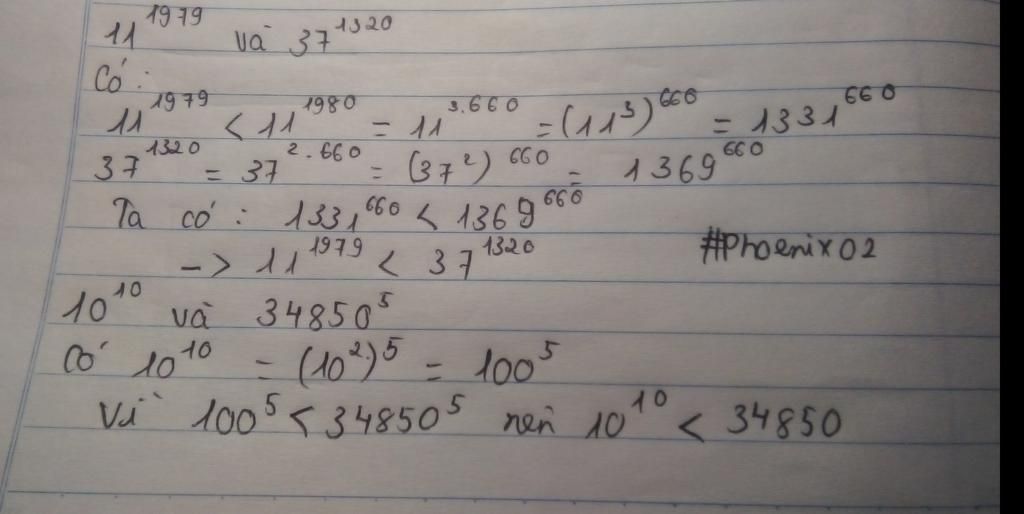 11^1979 và 37^1320
Có:
11^1979 < 11^1980 = 11^3.660 = (11^3)^660 = 1331^660
37^1320 = 37^2.660 = (37^2)^660 = 1369^660
Ta có: 1331^660 < 1369^660
-> 11^1979 < 37^1320
#Phoenix02
10^10 và 34850^5
Có 10^10 = (10^2)^5 = 100^5
Vì 100^5 < 34850^5 nên 10^10 < 34850